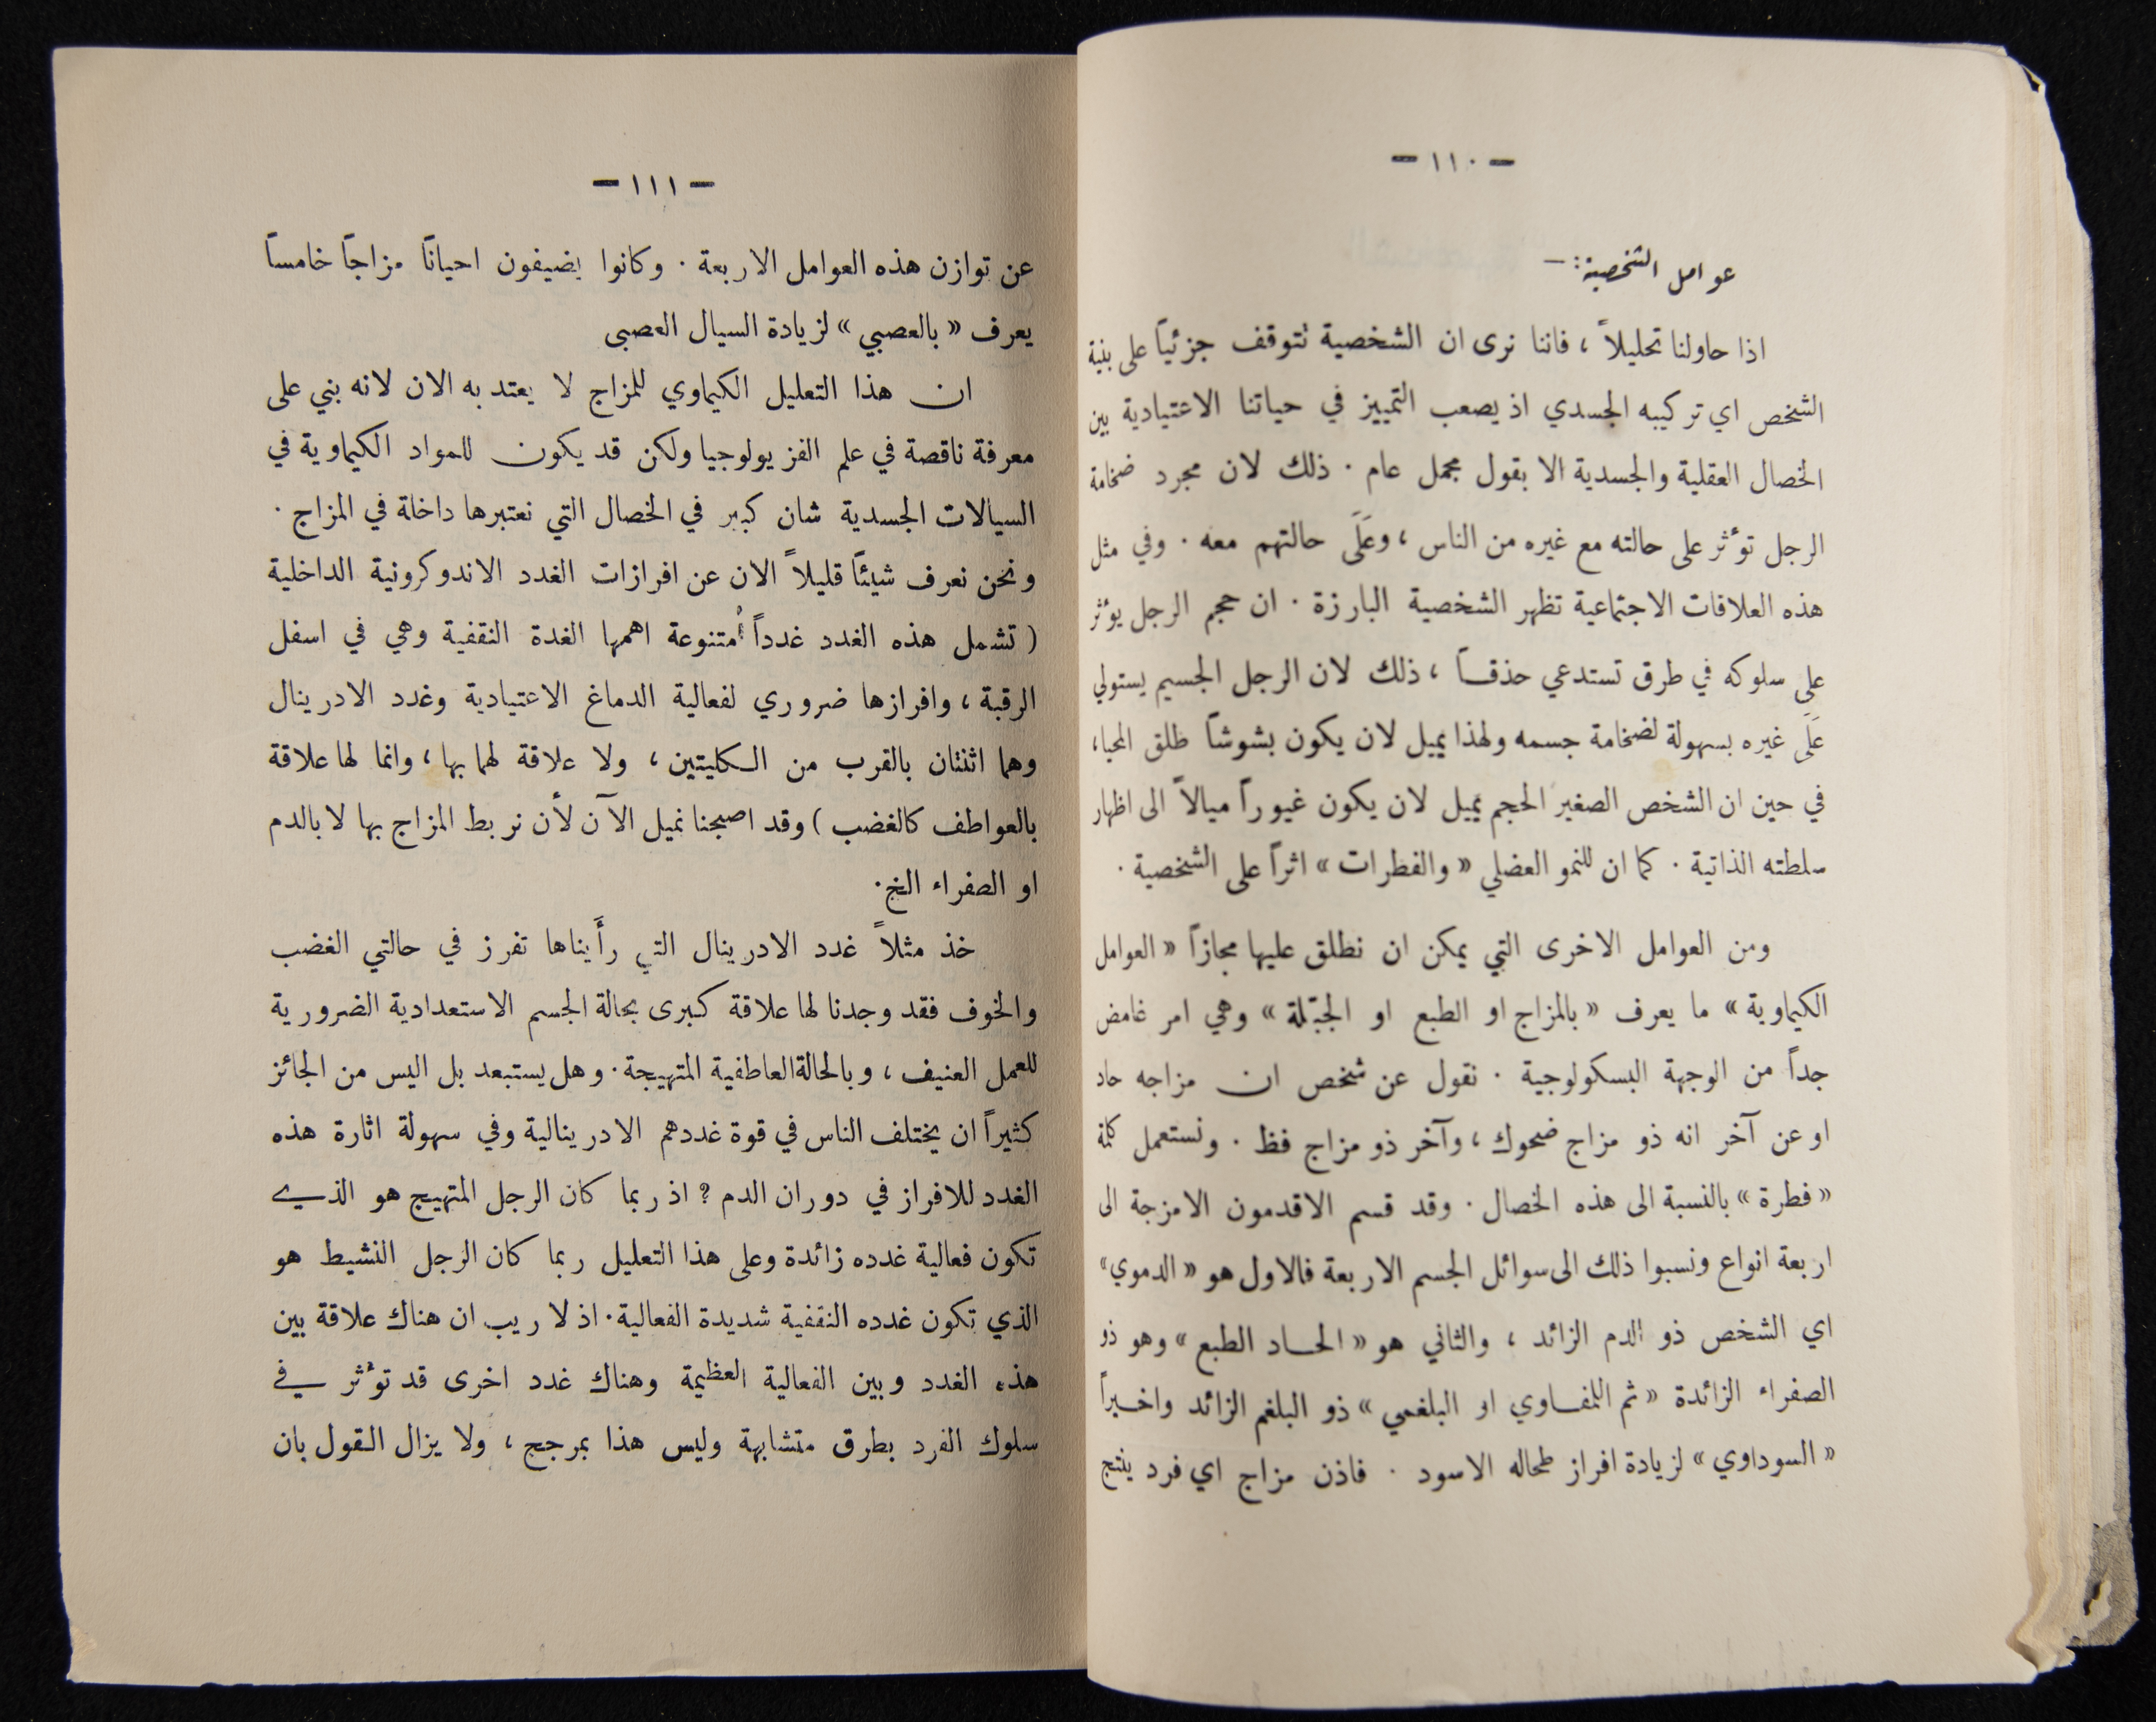 — ١١٠ —
عوامل الشخصية : —
اذا حاولنا تحليلاً ، فاننا نرى ان الشخصية تتوقف جزئياً على بنية
الشخص اي تركيبه الجسدي اذ يصعب التمييز في حياتنا الاعتيادية بين
الخصال العقلية والجسدية الا بقول مجمل عام . ذلك لان مجرد ضخامة
الرجل تؤثر على حالته مع غيره من الناس ، وعَلَى حالتهم معه . وفي مثل
هذه العلاقات الاجتماعية تظهر الشخصية البارزة . ان حجم الرجل يؤثر
على سلوكه في طرق تستدعي حذقاً ، ذلك لان الرجل الجسيم يستولي
عَلَى غيره بسهولة لضخامة جسمه ولهذا يميل لان يكون بشوشاً طلق المحيا ،
في حين ان الشخص الصغير الحجم يميل لان يكون غيوراً ميالاً الى اظهار
سلطته الذاتية . كما ان للنمو العضلي « والفطرات » اثراً على الشخصية .
ومن العوامل الاخرى التي يمكن ان نطلق عليها مجازاً « العوامل
الكيماوية » ما يعرف « بالمزاج او الطبع او الجبّلة » وهي امر غامض
جداً من الوجهة البسكولوجية . نقول عن شخص ان مزاجه حاد
او عن آخر انه ذو مزاج ضحوك ، وآخر ذو مزاج فظ . ونستعمل كلمة
« فطرة » بالنسبة الى هذه الخصال . وقد قسم الاقدمون الامزجة الى
اربعة انواع ونسبوا ذلك الى سوائل الجسم الاربعة فالاول هو « الدموي »
اي الشخص ذو الدم الزائد ، والثاني هو « الحاد الطبع » وهو ذو
الصفراء الزائدة « ثم اللمفاوي او البلغمي » ذو البلغم الزائد واخيراً
« السوداوي » لزيادة افراز طحاله الاسود . فاذن مزاج اي فرد ينتج
— ١١١ —
عن توازن هذه العوامل الاربعة . وكانوا يضيفون احياناً مزاجاً خامساً
يعرف « بالعصبي » لزيادة السيال العصبى
ان هذا التعليل الكيماوي للمزاج لا يعتد به الان لانه بني على
معرفة ناقصة في علم الفزيولوجيا ولكن قد يكون للمواد الكيماوية في
السيالات الجسدية شان كبير في الخصال التي نعتبرها داخلة في المزاج .
ونحن نعرف شيئاً قليلاً الان عن افرازات الغدد الاندوكرونية الداخلية
( تشمل هذه الغدد غدداً مُتنوعة اهمها الغدة النقفية وهي في اسفل
الرقبة ، وافرازها ضروري لفعالية الدماغ الاعتيادية وغدد الادرينال
وهما اثنتان بالقرب من الكليتين ، ولا علاقة لهما بها ، وانما لها علاقة
بالعواطف كالغضب ) وقد اصبحنا نميل الآن لأن نربط المزاج بها لا بالدم
او الصفراء الخ .
خذ مثلاً غدد الادرينال التي رأَيناها تفرز في حالتي الغضب
والخوف فقد وجدنا لها علاقة كبرى بحالة الجسم الاستعدادية الضرورية
للعمل العنيف ، وبالحالة العاطفية المتهيجة . وهل يستبعد بل اليس من الجائز
كثيراً ان يختلف الناس في قوة غددهم الادرينالية وفي سهولة اثارة هذه
الغدد للافراز في دوران الدم ؟ اذ ربما كان الرجل المتهيج هو الذي
تكون فعالية غدده زائدة وعلى هذا التعليل ربما كان الرجل النشيط هو
الذي تكون غدده النقفية شديدة الفعالية . اذ لا ريب ان هناك علاقة بين
هذه الغدد وبين الفعالية العظيمة وهناك غدد اخرى قد تؤثر في
سلوك الفرد بطرق متشابهة وليس هذا بمرجح ، ولا يزال القول بان